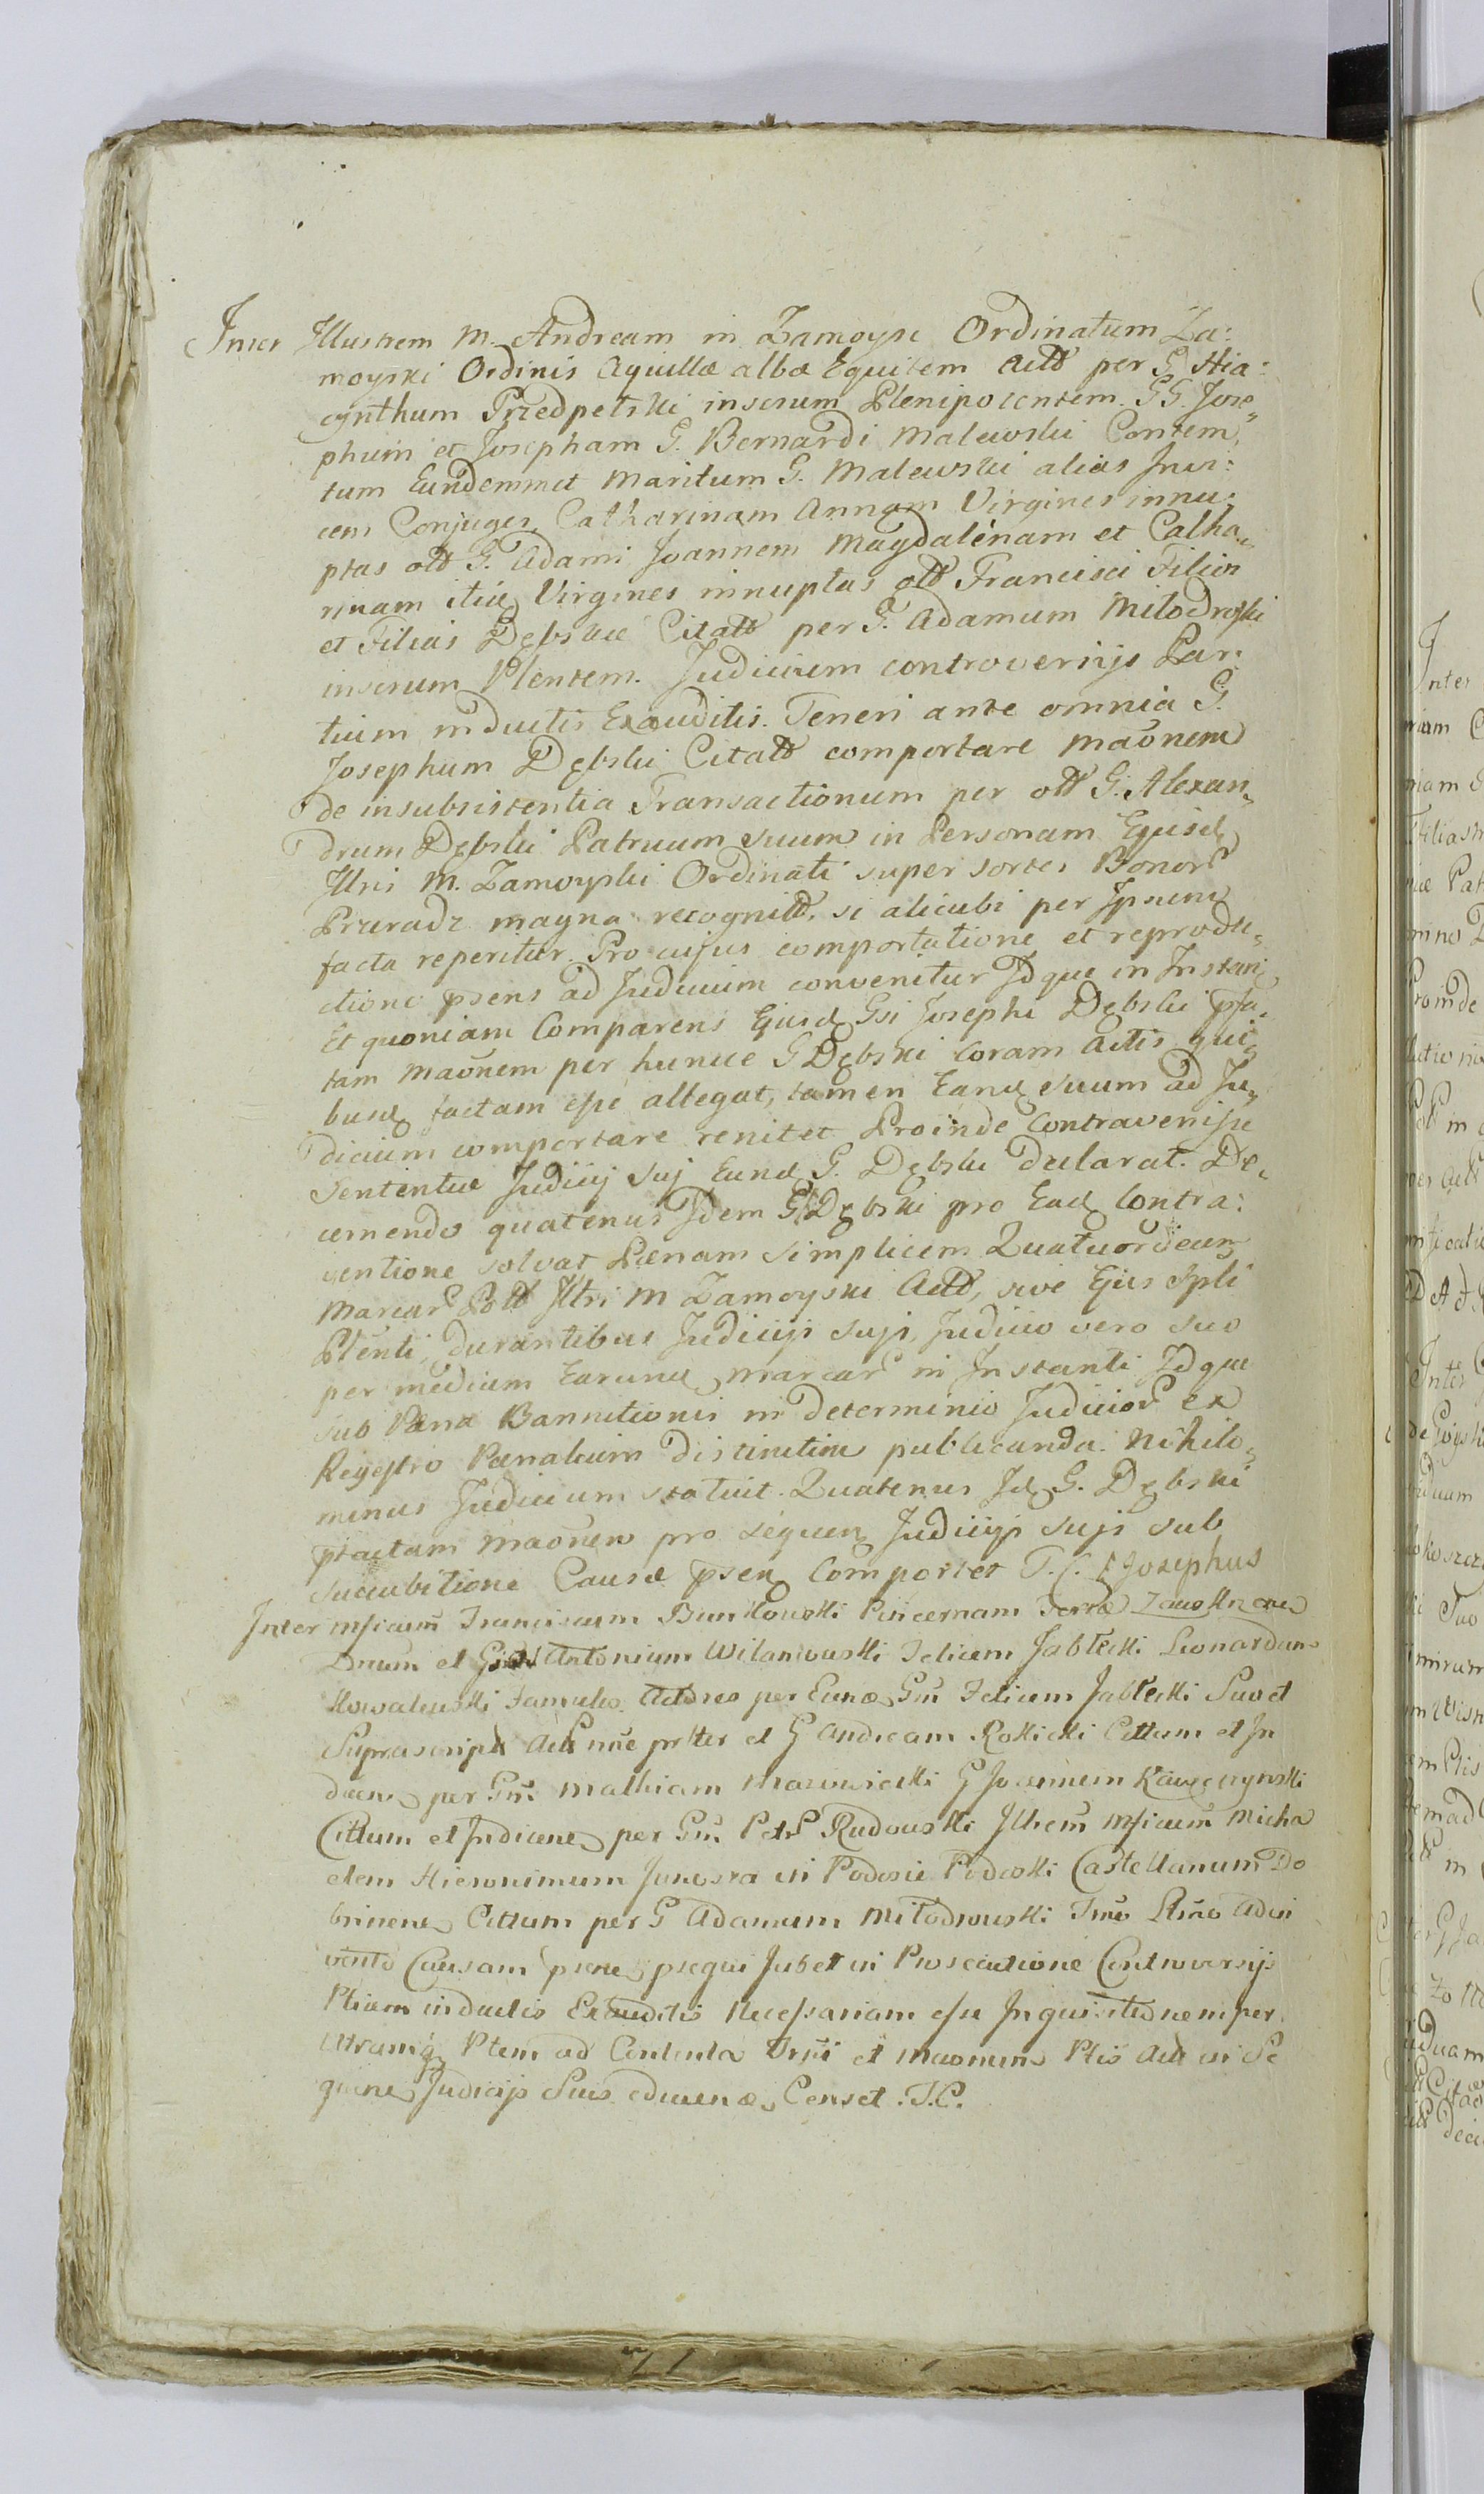 Inter Illustrem M. Andream in Zamoysc Ordinatum Za:
moyski Ordinis Aquillæ albæ Equitem Actt per G. Hia:
cynthum Przedpelski inserum Plenipotentem. GG. Jose-
phum et Josepham G. Bernardi Malewski Contem,
tum Eundemmet Maritum G. Malewski alias Invi:
cem Conjuges, Catharinam Annam Virgines innu:
ptas olt G. Adami Joannem Magdalénam et Catha,
rinam itid Virgines innuptas olt Francisci Filios
et Filias Dębskie Citatt per G. Adamum Miłodroski
inserum Plentem. Judicium controversijs Par:
tium inductis Exauditis. Teneri ante omnia G.
Josephum Dębski Citatt comportare Maõnem
de insubsistentia Transactionum per olt G. Alexan,
drum Dębski Patruum suum in Personam Ejusd
Illris M. Zamoyski Ordinati super sortes Bonor
Przeradz magna recognitt, si alicubi per Ipsum
facta reperitur. Pro cujus comportatione et reprodu,
ctione psens ad Judicium convenitur Idque in Instanti,
Et quoniam Comparens Ejusd Gsi Josephi Dębski pfa,
tam Maõnem per hunce G Dębski coram Actis qui,
busd factam esse allegat, tamen Eand suum ad Ju,
dicium comportare renitet Proinde Contravenisse
Sententiæ Judicij sui Eund G. Dębski declarat. De,
cernendo quatenus Idem G. Dębski pro Ead Contra:
ventione solvat Pænam simplicem Quatuordecim
Marcar Poll Illri M Zamoyski Actt, sive Ejus Spli
Plenti, durantibus Judicijs sujs, Judicio vero suo
per medium Earund Marcar in Instanti Idque
sub Pæna Bannitionis in determinio Judicior ex
Regestro Pænalium distinctim publicanda. Nihilo,
minus Judicium statuit. Quatenus Id G. Dębski
pfactam Maõnem pro sequen Judicijs sujs sub
succubitione Causæ psen Comportet T. C. Josephus
Inter Mficum Franciscum Bunkowski Pincernam Terræ Zawskrzen
Dnum et G Antonium Wilamowski Felicem Jabłecki Leonardum
Kowalewski Famulos Actores per Eund Gm Felicem Jabłecki Suo et
Suprascript Act nne prltter et G Andream Rokicki Cittum et In
ducen per Gm Mathiam Mazowiecki G Joannem Kawęczynski
Cittum et Inducen per Gm Petr Rudowski Illrem Mficum Micha
elem Hieronimum Junosza in Podosie Podoski Castellanum Do
brinen Cittum per G Adamum Miłodrowski Tmo Ltmo Adin
vento Causam psen psequi Jubet in Prosecutione Controversijs
Ptium inductis Exauditis Necessariam esse Inquisitionem per
utramq Ptem ad Contenta Trsi et Maonum Ptis Act in Se
quen Judicijs Suis educend Censet. T. C.
71